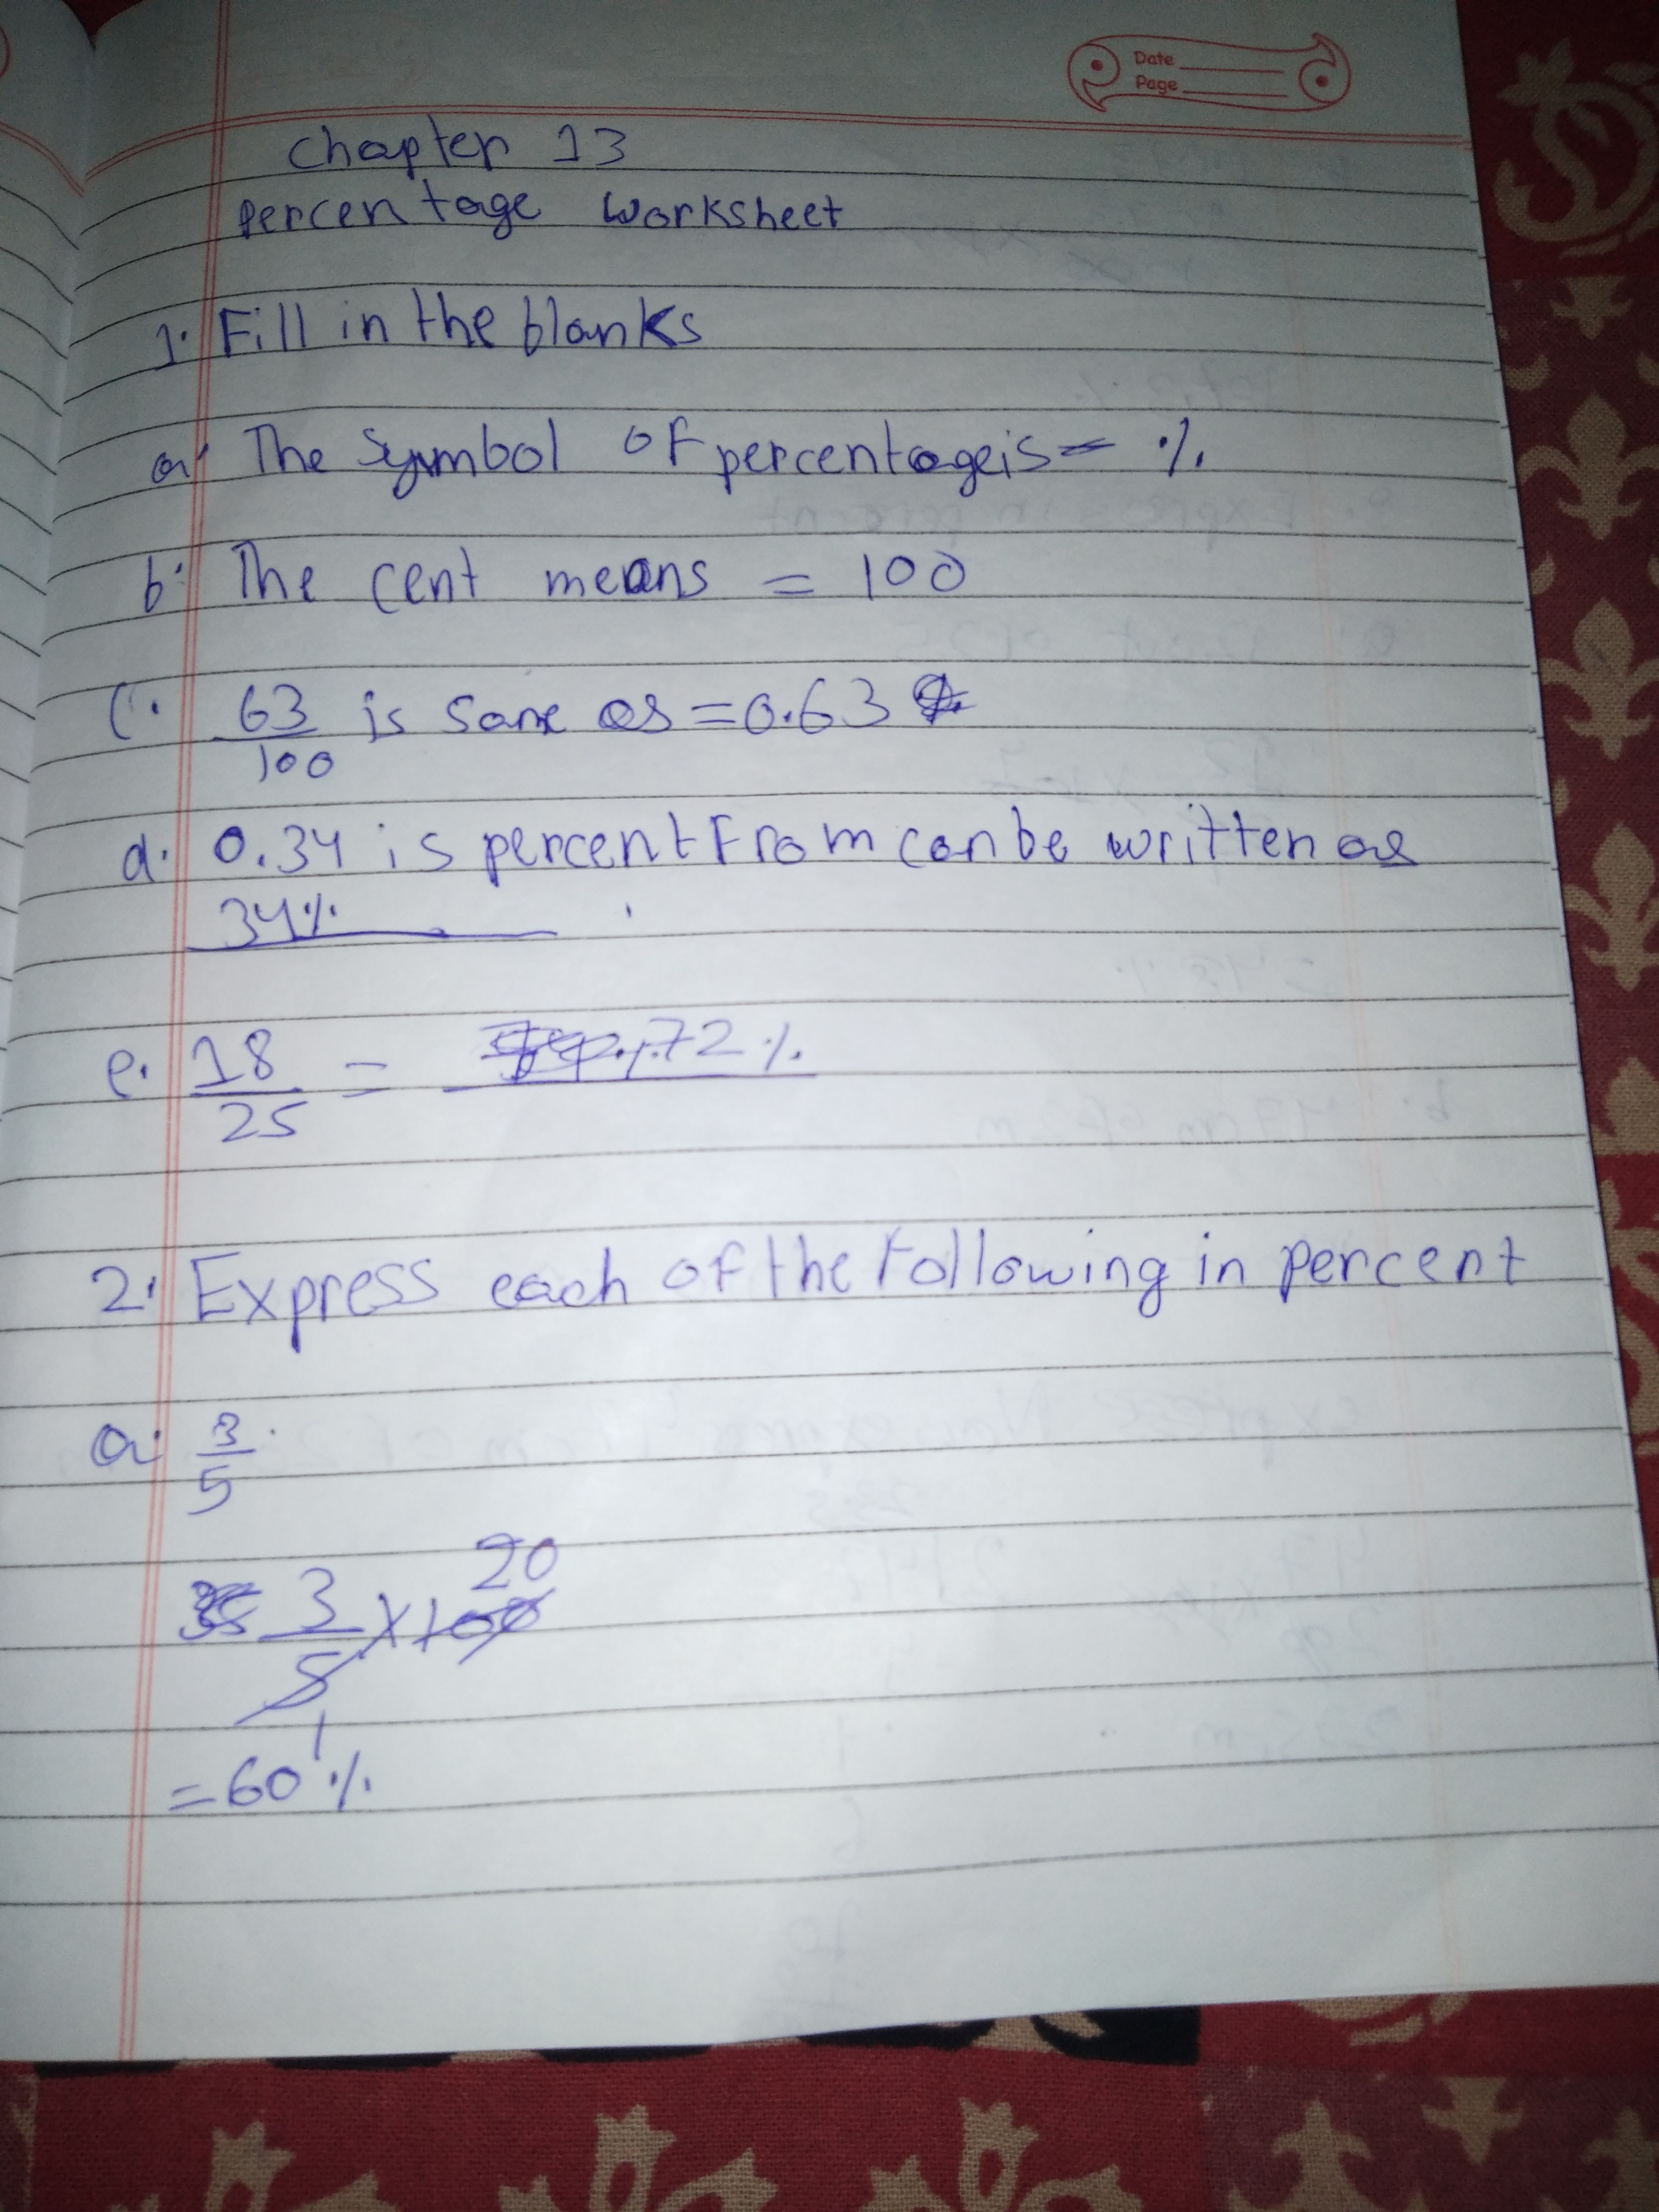 Date
Page
chapter 13
percentage worksheet
1. Fill in the blanks
a. The Symbol of percentage is = %
b. The cent means = 100
c. 63/100 is same as = 0.63
d. 0.34 is percent From can be written as
34%
e. 18/25 = 72%
2. Express each of the Following in percent
a. 3/5
20
3/5 x 100
1
= 60%